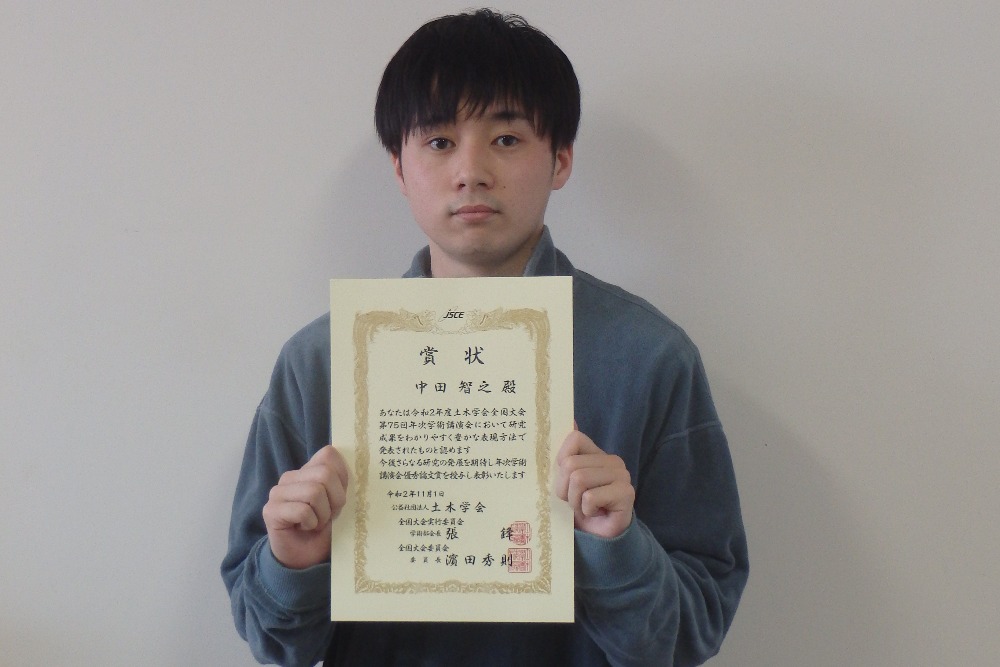 JSCE
賞 状
中田 智之 殿
あなたは令和2年度土木学会全国大会
第75回年次学術講演会において研究
成果をわかりやすく豊かな表現方法で
発表されたものと認めます
今後さらなる研究の発展を期待し年次学術
講演会優秀論文賞を授与し表彰いたします
令和2年11月1日
公益社団法人 土木学会
全国大会実行委員会
学術部会長 張 鋒
全国大会委員会
委員長 濱田秀則